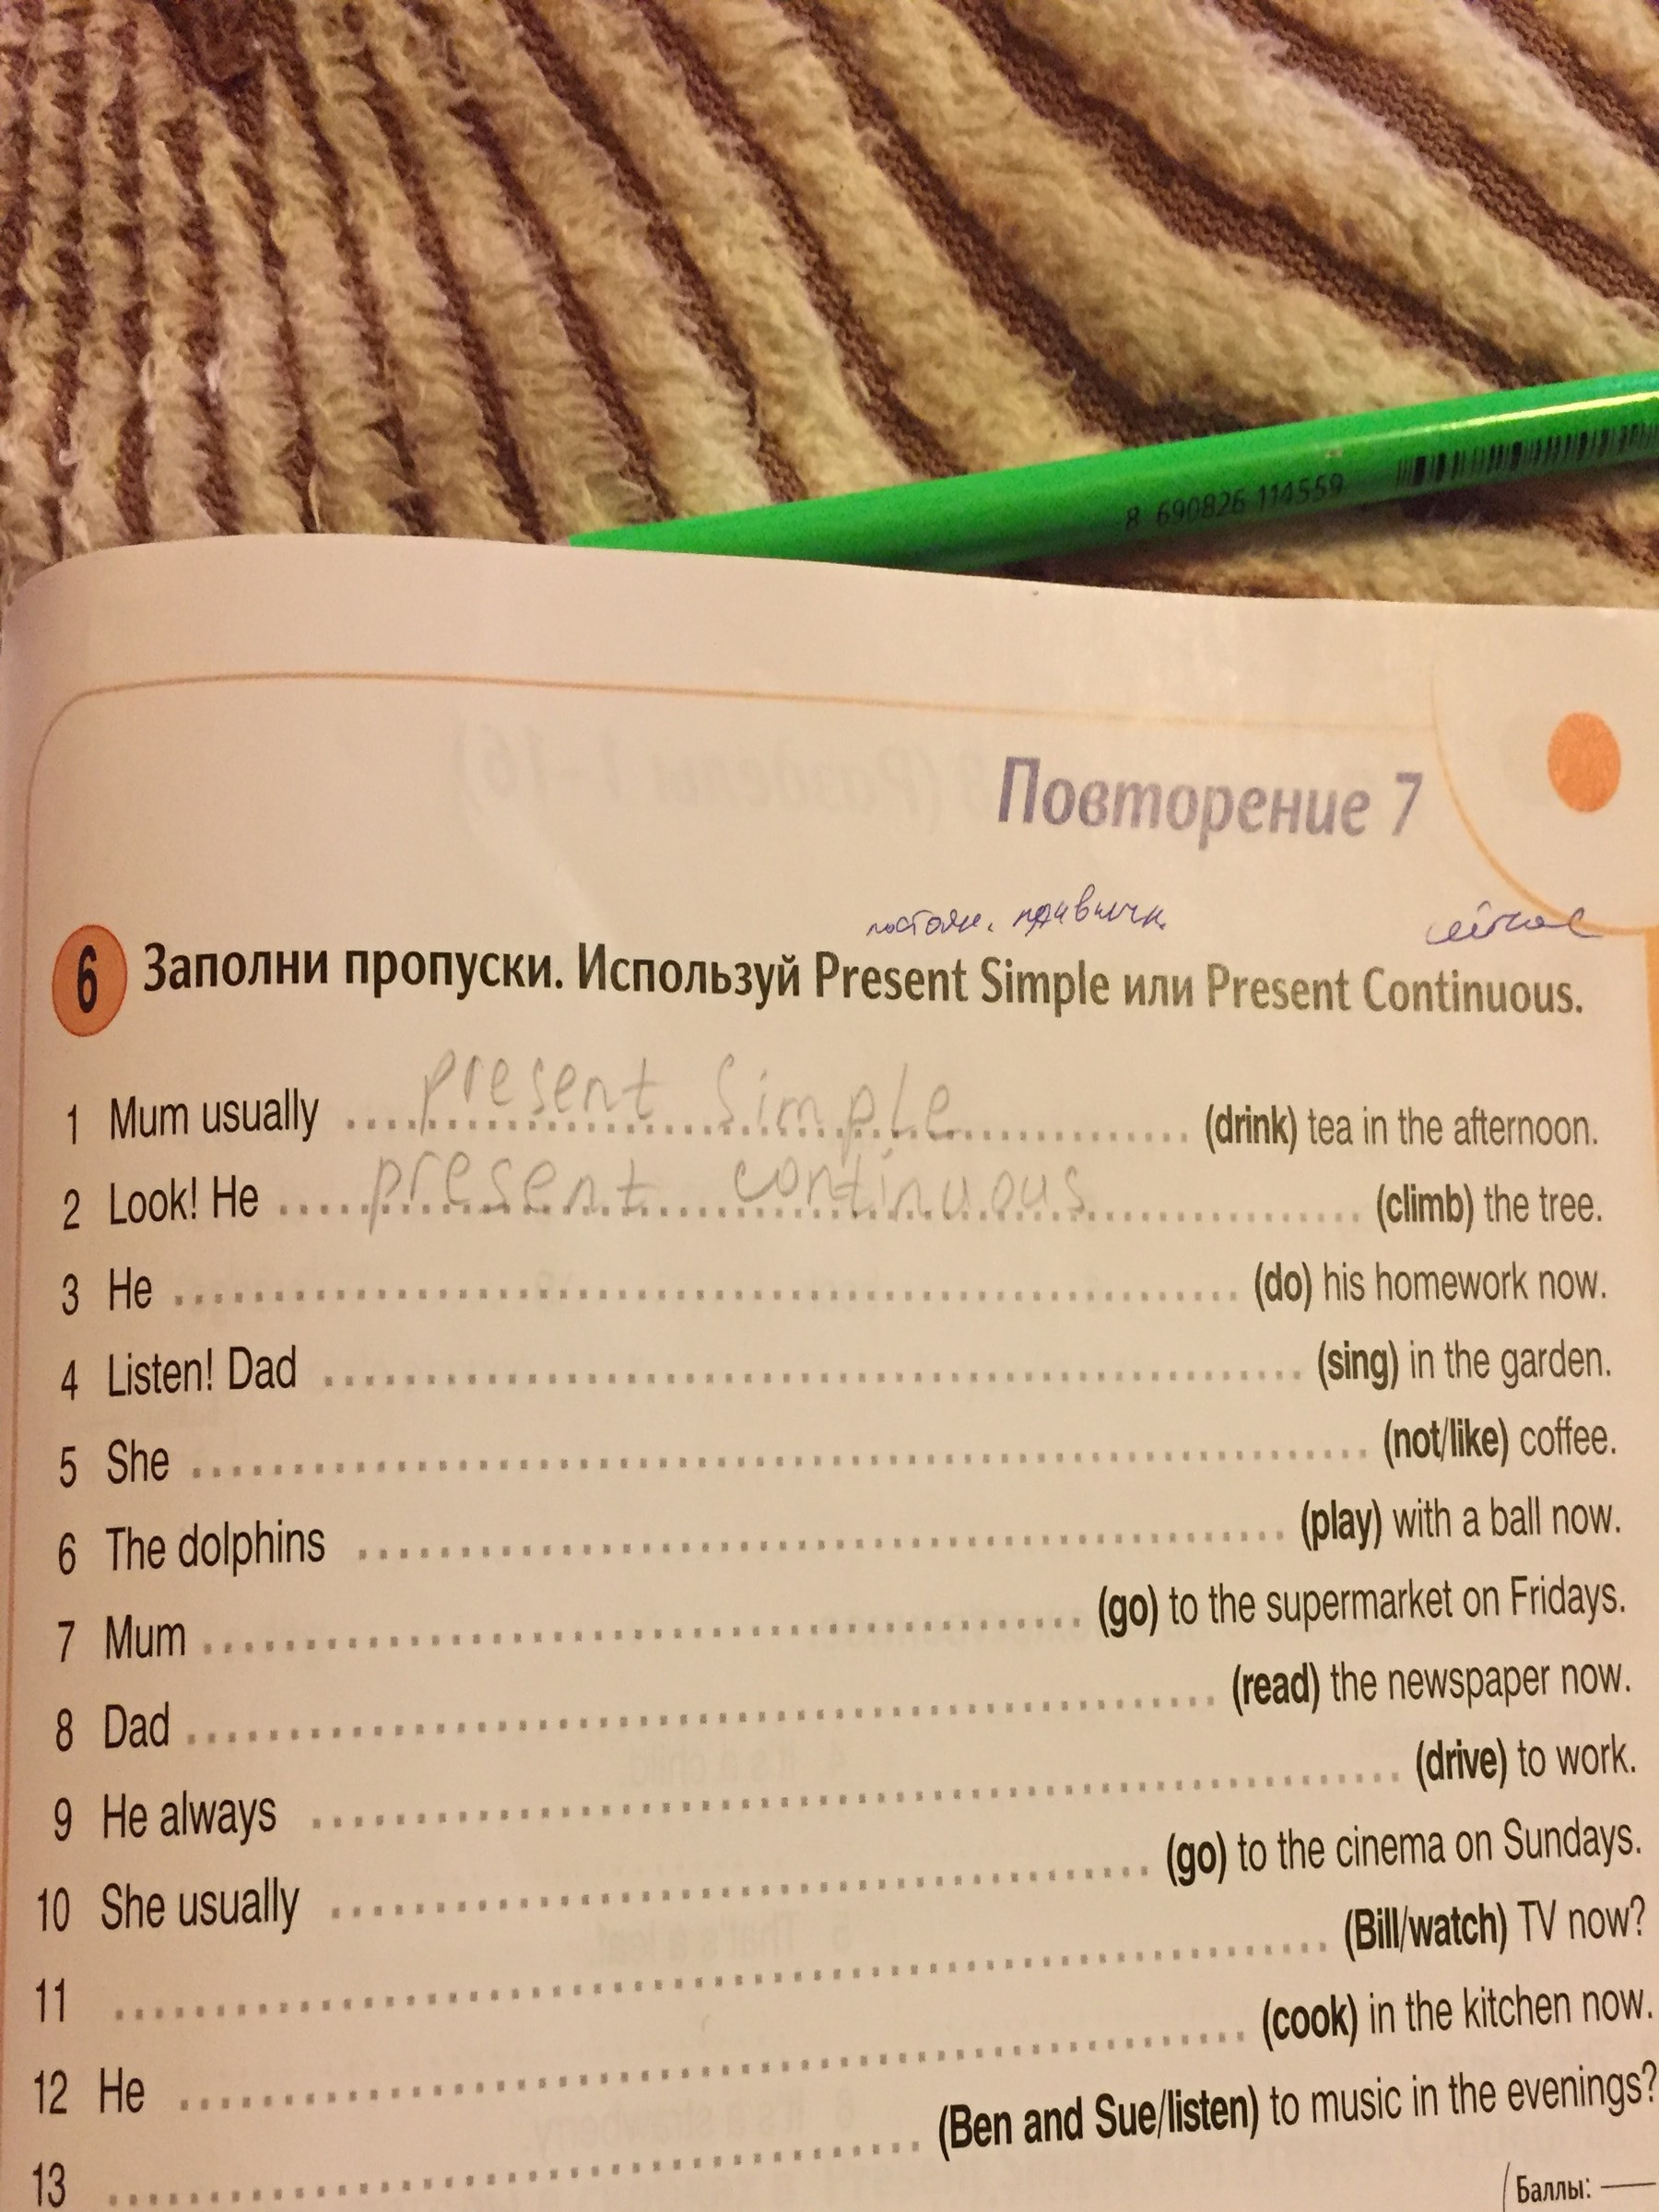 8 690826 114559
Повторение 7
постоян. привычк.
сейчас
6 Заполни пропуски. Используй Present Simple или Present Continuous.
1 Mum usually .... present simple .... (drink) tea in the afternoon.
2 Look! He .... present continuous .... (climb) the tree.
3 He .... (do) his homework now.
4 Listen! Dad .... (sing) in the garden.
5 She .... (not/like) coffee.
6 The dolphins .... (play) with a ball now.
7 Mum .... (go) to the supermarket on Fridays.
8 Dad .... (read) the newspaper now.
9 He always .... (drive) to work.
10 She usually .... (go) to the cinema on Sundays.
11 .... (Bill/watch) TV now?
12 He .... (cook) in the kitchen now.
13 .... (Ben and Sue/listen) to music in the evenings?
Баллы: